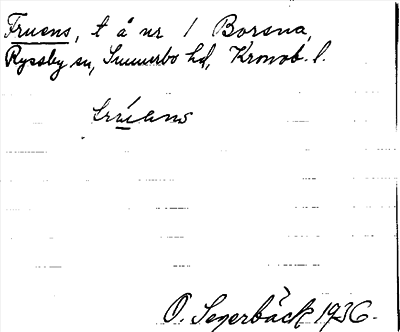 Fruens, t å nr 1 Borsna,
Ryssby sn, Sunnerbo hd, Kronob. l.
O. Segerbäck 1936.